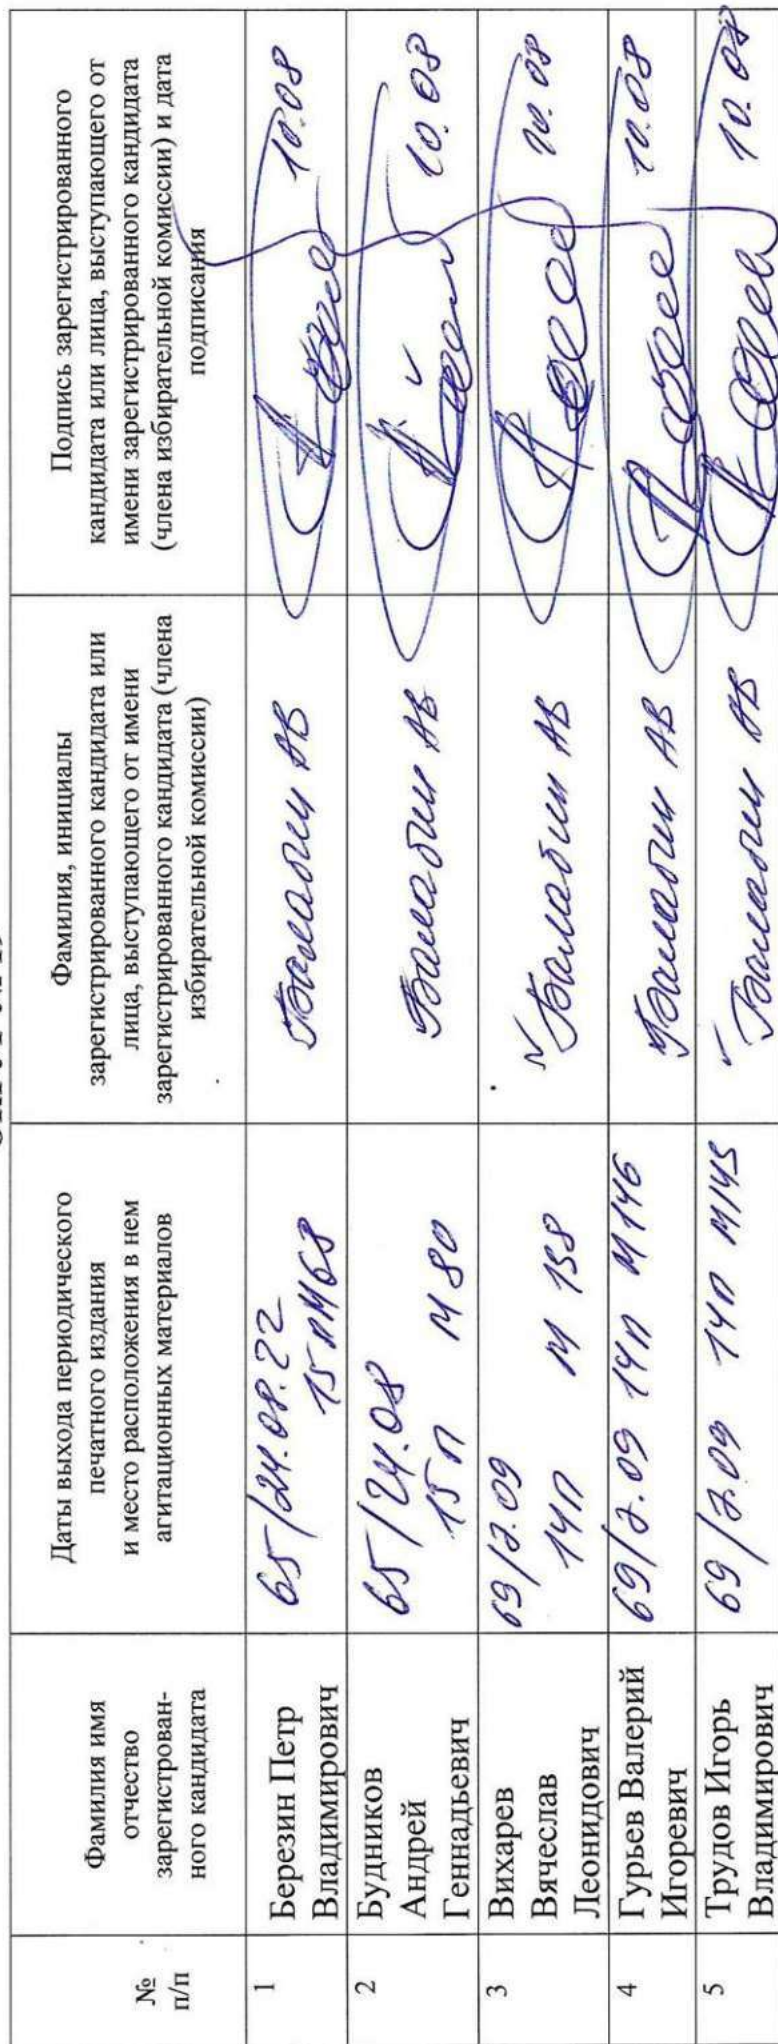 №
п/п
Фамилия имя
отчество
зарегистрирован-
ного кандидата
Даты выхода периодического
печатного издания
и место расположения в нем
агитационных материалов
Фамилия, инициалы
зарегистрированного кандидата или
лица, выступающего от имени
зарегистрированного кандидата (члена
избирательной комиссии)
Подпись зарегистрированного
кандидата или лица, выступающего от
имени зарегистрированного кандидата
(члена избирательной комиссии) и дата
подписания
1
Березин Петр
Владимирович
65/24.08.22
15п М68
Балабин АВ
10.08
2
Будников
Андрей
Геннадьевич
65/24.08
15п М 80
Балабин АВ
10.08
3
Вихарев
Вячеслав
Леонидович
69/7.09
14п М 158
Балабин АВ
10.08
4
Гурьев Валерий
Игоревич
69/7.09 14п М146
Балабин АВ
10.08
5
Трудов Игорь
Владимирович
69/7.09 14п М145
Балабин АВ
10.08